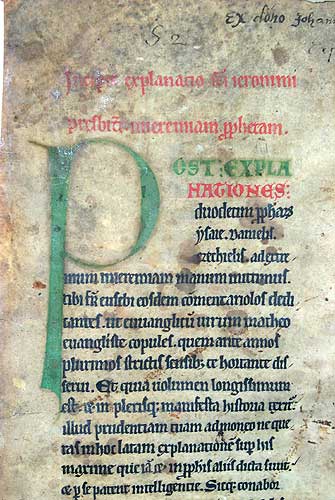 Ex dono Johan
52
Incipit explanatio sci ieronimi
presbiteri in ieremiam pphetam.
POST EXPLA
NATIONES:
duodecim pphars
ysaie. danielis.
ezechielis. ad extre
mum in ieremiam manum mittimus.
tibi fr eusebi eosdem comentariolos dedi
cantes. ut euangelicum uirum matheo
euangeliste copules. quem ante annos
plurimos strictis sensib; te hortante dis
serui. Et quia uolumen longissimum
est. & in plerisq; manifesta historia texit.
illud prudentiam tuam admoneo ne que
ras in hoc latam explanationem sup his
maxime que iam & in pphis aliis dicta sunt.
& p se patent intelligentie. Sic eni conabor